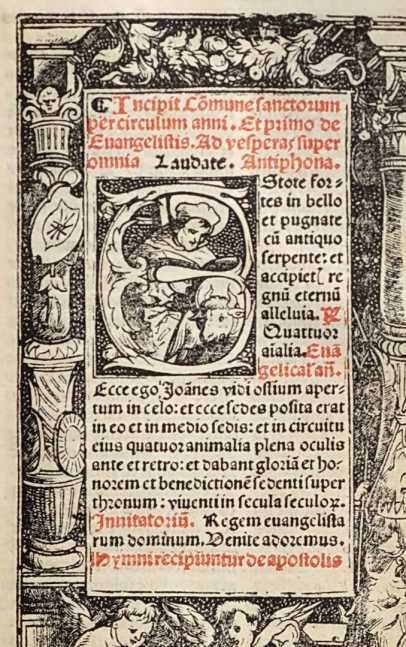 ¶ Incipit Cōmune sanctorum
per circulum anni. Et primo de
Euangelistis. Ad vesperas super
omnia Laudate. Antiphona.
EStote for-
tes in bello
et pugnate
cū antiquo
serpente: et
accipietꝭ re
gnū eternū
alleluia. ℟
Quattuor
aīalia. Euā
gelica. an̄.
Ecce ego Joānes vidi ostium aper-
tum in celo: et ecce sedes posita erat
in eo et in medio sedis: et in circuitu
eius quatuor animalia plena oculis
ante et retro: et dabant gloriā et ho-
norem et benedictionē sedenti super
thronum: viuenti in secula seculoꝝ.
Inuitatoriū. Regem euangelista
rum dominum. Venite adoremus.
Hymni recipiuntur de apostolis